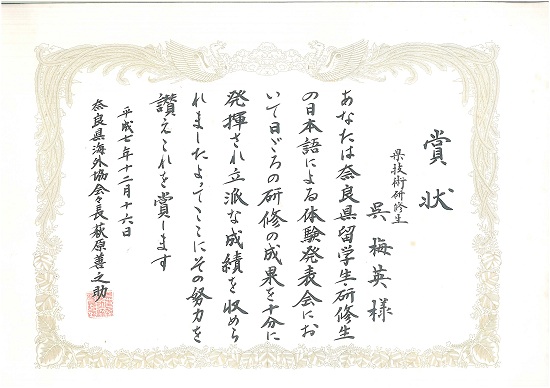 賞状
県技術研修生
呉梅英様
あなたは奈良県留学生・研修生
の日本語による体験発表会にお
いて日ごろの研修の成果を十分に
発揮され立派な成績を収めら
れましたよってここにその努力を
讃えこれを賞します
平成七年十二月十六日
奈良県海外協会々長萩原善之助